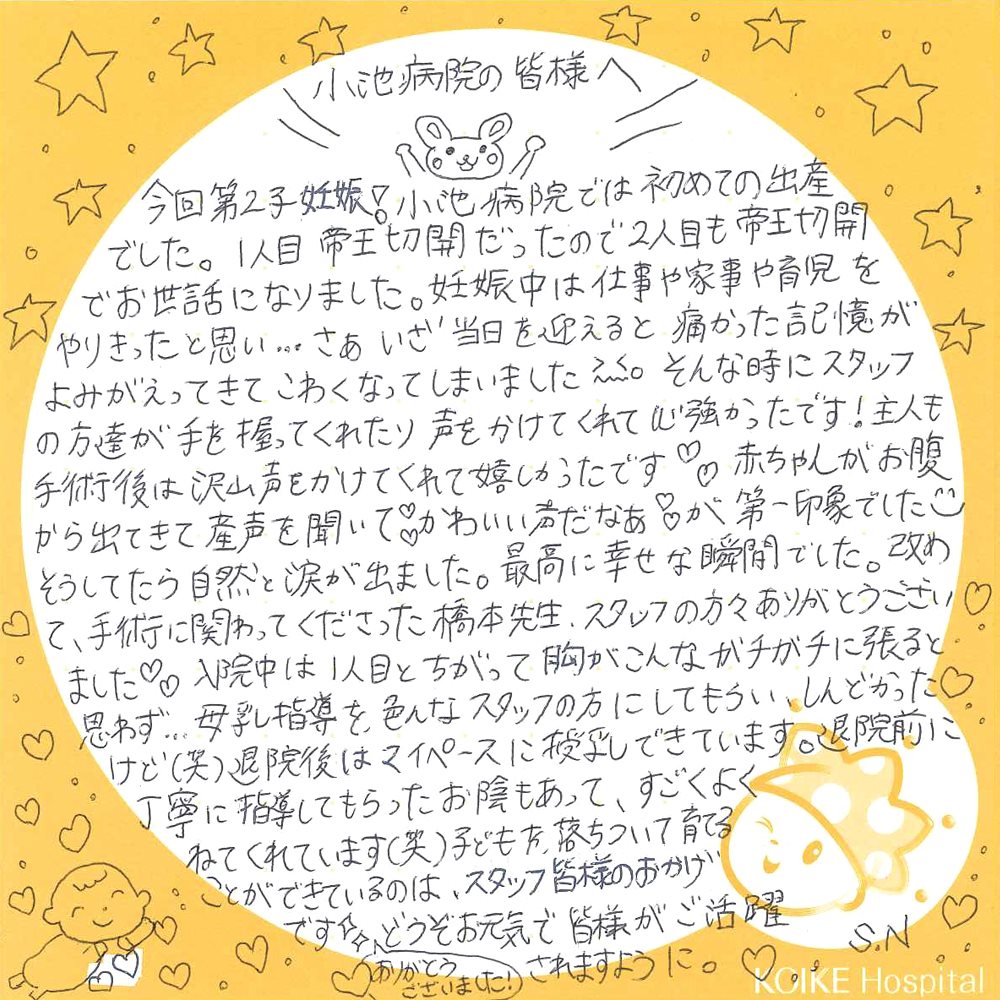 小池病院の皆様へ
今回第2子妊娠!小池病院では初めての出産
でした。1人目帝王切開だったので2人目も帝王切開
でお世話になりました。妊娠中は仕事や家事や育児を
やりきったと思い…さぁいざ当日を迎えると痛かった記憶が
よみがえってきてこわくなってしまいました。そんな時にスタッフ
の方達が手を握ってくれたり声をかけてくれて心強かったです!主人も
手術後は沢山声をかけてくれて嬉しかったです♡♡赤ちゃんがお腹
から出てきて産声を聞いて♡かわいい声だなぁ♡が第一印象でした
そうしてたら自然と涙が出ました。最高に幸せな瞬間でした。改め
て、手術に関わってくださった橋本先生、スタッフの方々ありがとうござい
ました♡♡入院中は1人目とちがって胸がこんなガチガチに張ると
思わず…母乳指導を色んなスタッフの方にしてもらい、しんどかった
けど(笑)退院後はマイペースに授乳しできています。退院前に
丁寧に指導してもらったお陰もあって、すごくよく
ねてくれています(笑)子ども方落ちついて育てる
ことができているのは、スタッフ皆様のおかげ
です☆どうぞお元気で皆様がご活躍
されますように。
ありがとう
ございました!
S.N
KOIKE Hospital